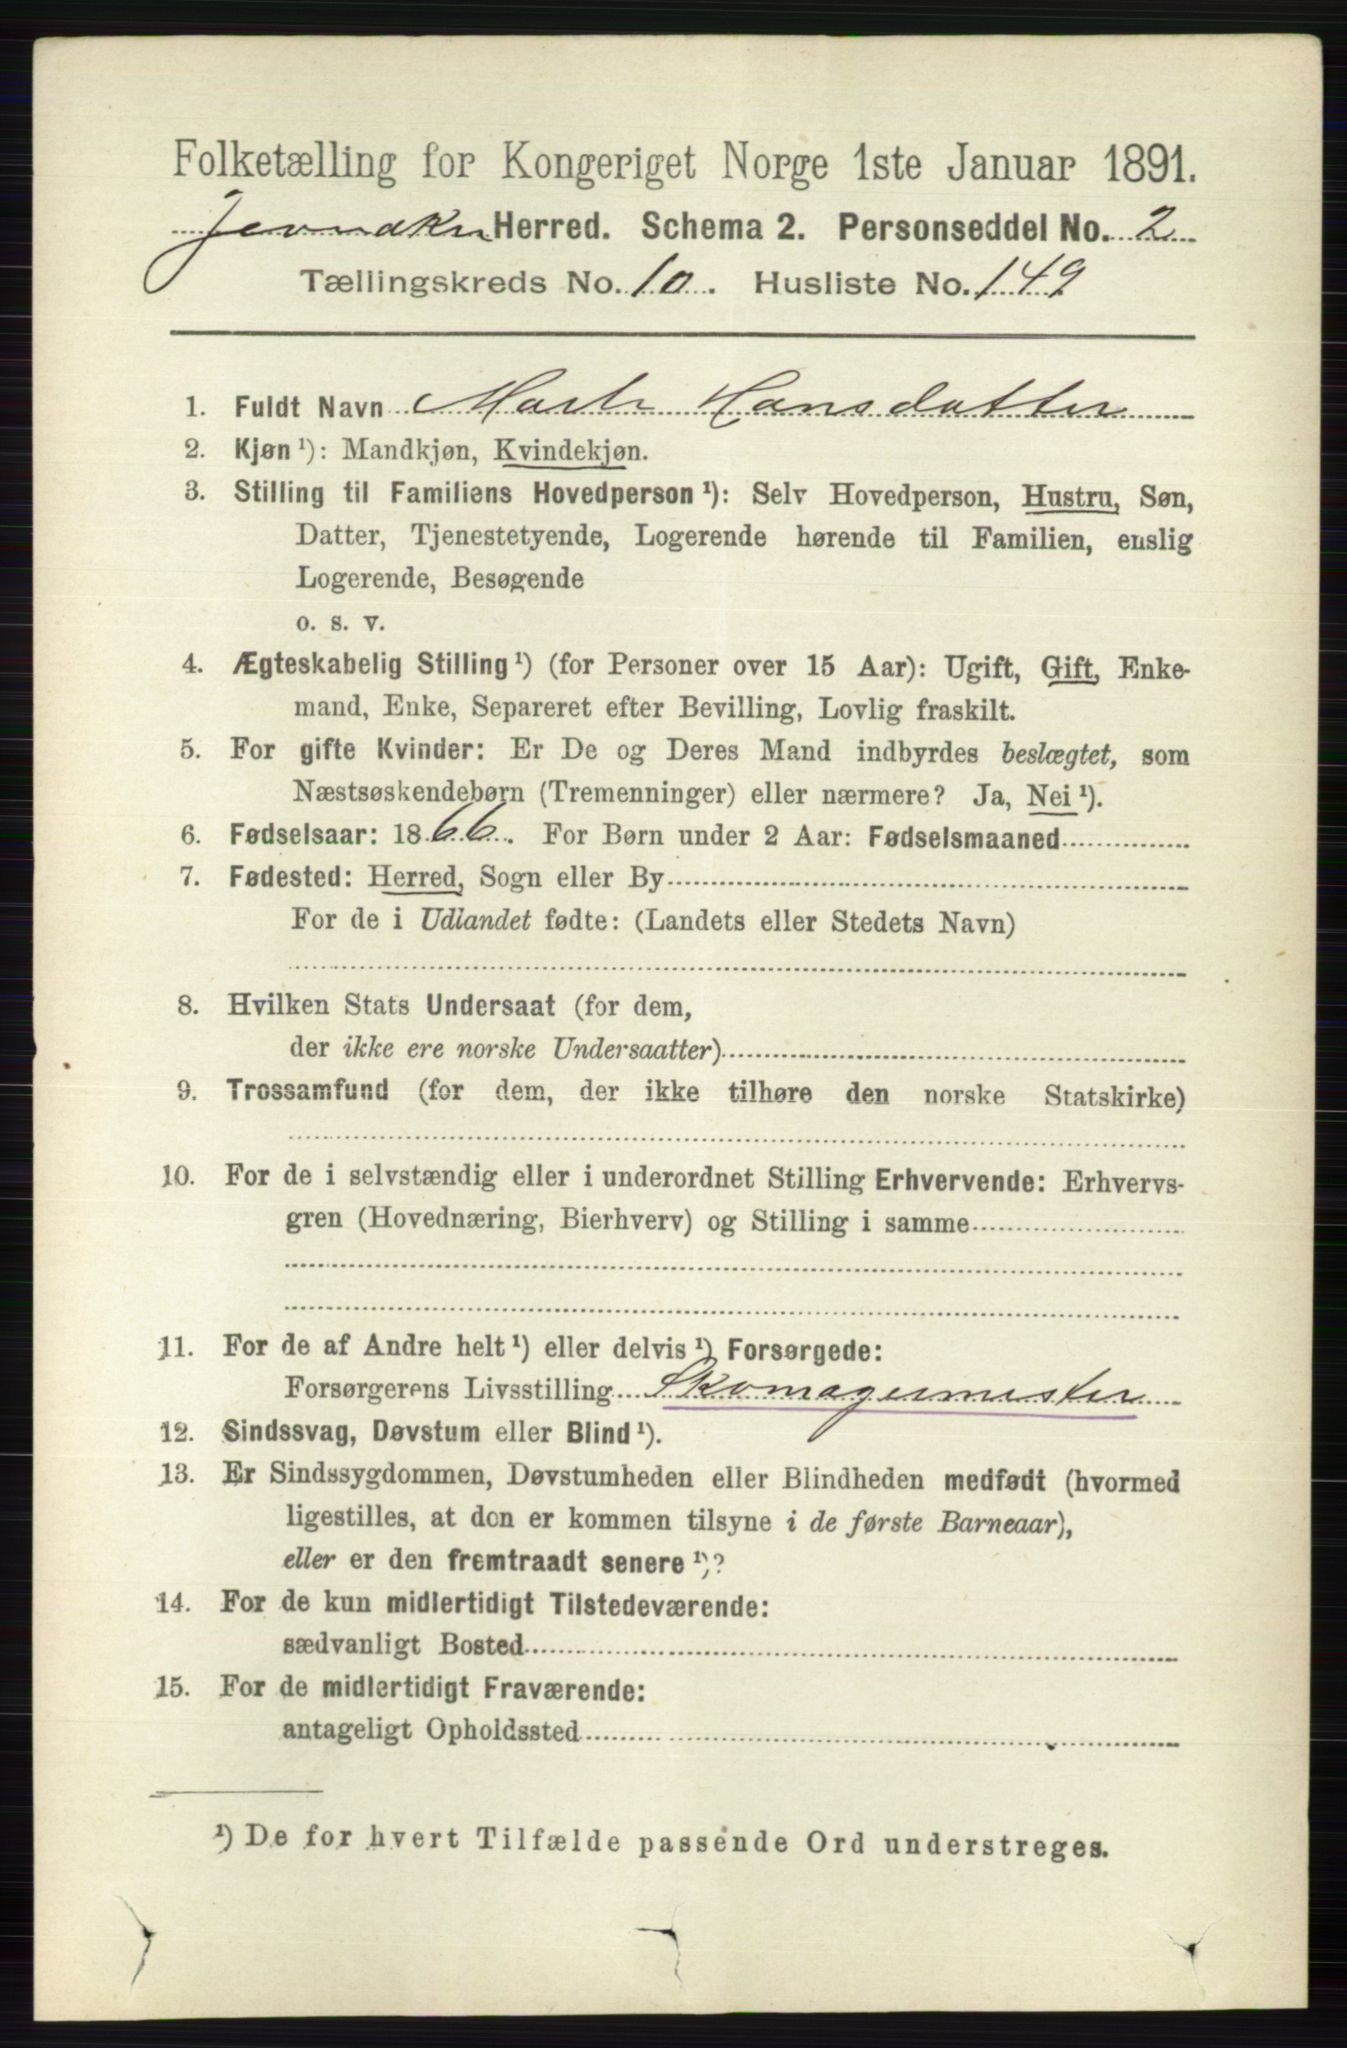 Folketælling for Kongeriget Norge 1ste Januar 1891.
Jevnaker Herred. Schema 2. Personseddel No. 2
Tællingskreds No. 10. Husliste No. 149
1. Fuldt Navn Marte Hansdatter
2. Kjøn ¹): Mandkjøn, Kvindekjøn.
3. Stilling til Familiens Hovedperson ¹): Selv Hovedperson, Hustru, Søn,
Datter, Tjenestetyende, Logerende hørende til Familien, enslig
Logerende, Besøgende
o. s. v.
4. Ægteskabelig Stilling ¹) (for Personer over 15 Aar): Ugift, Gift, Enke-
mand, Enke, Separeret efter Bevilling, Lovlig fraskilt.
5. For gifte Kvinder: Er De og Deres Mand indbyrdes beslægtet, som
Næstsøskendebørn (Tremenninger) eller nærmere? Ja, Nei ¹).
6. Fødselsaar: 1866. For Børn under 2 Aar: Fødselsmaaned
7. Fødested: Herred, Sogn eller By
For de i Udlandet fødte: (Landets eller Stedets Navn)
8. Hvilken Stats Undersaat (for dem,
der ikke ere norske Undersaatter)
9. Trossamfund (for dem, der ikke tilhøre den norske Statskirke)
10. For de i selvstændig eller i underordnet Stilling Erhvervende: Erhvervs-
gren (Hovednæring, Bierhverv) og Stilling i samme
11. For de af Andre helt ¹) eller delvis ¹) Forsørgede:
Forsørgerens Livsstilling Skomagermester
12. Sindssvag, Døvstum eller Blind ¹).
13. Er Sindssygdommen, Døvstumheden eller Blindheden medfødt (hvormed
ligestilles, at den er kommen tilsyne i de første Barneaar),
eller er den fremtraadt senere ¹)?
14. For de kun midlertidigt Tilstedeværende:
sædvanligt Bosted
15. For de midlertidigt Fraværende:
antageligt Opholdssted
¹) De for hvert Tilfælde passende Ord understreges.